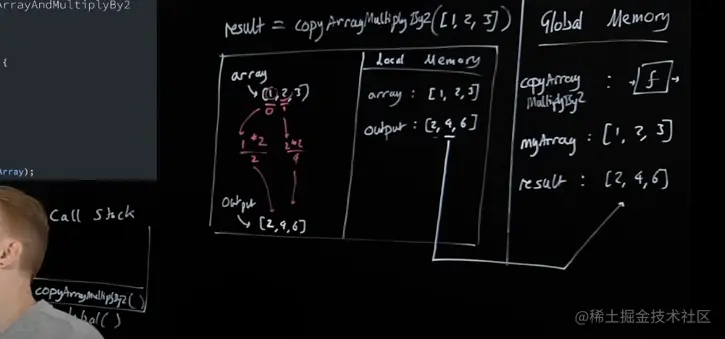 ArrayAndMultiplyBy2
{
Array);
result = copyArrayMultiplyBy2([1, 2, 3])
array
[1, 2, 3]
0 1
1*2 2*2
2 4
output
[2, 4, 6]
Local Memory
array : [1, 2, 3]
output : [2, 4, 6]
Global Memory
copyArray : → f →
MultiplyBy2
myArray : [1, 2, 3]
result : [2, 4, 6]
Call Stack
copyArrayMultiplyBy2()
@稀土掘金技术社区